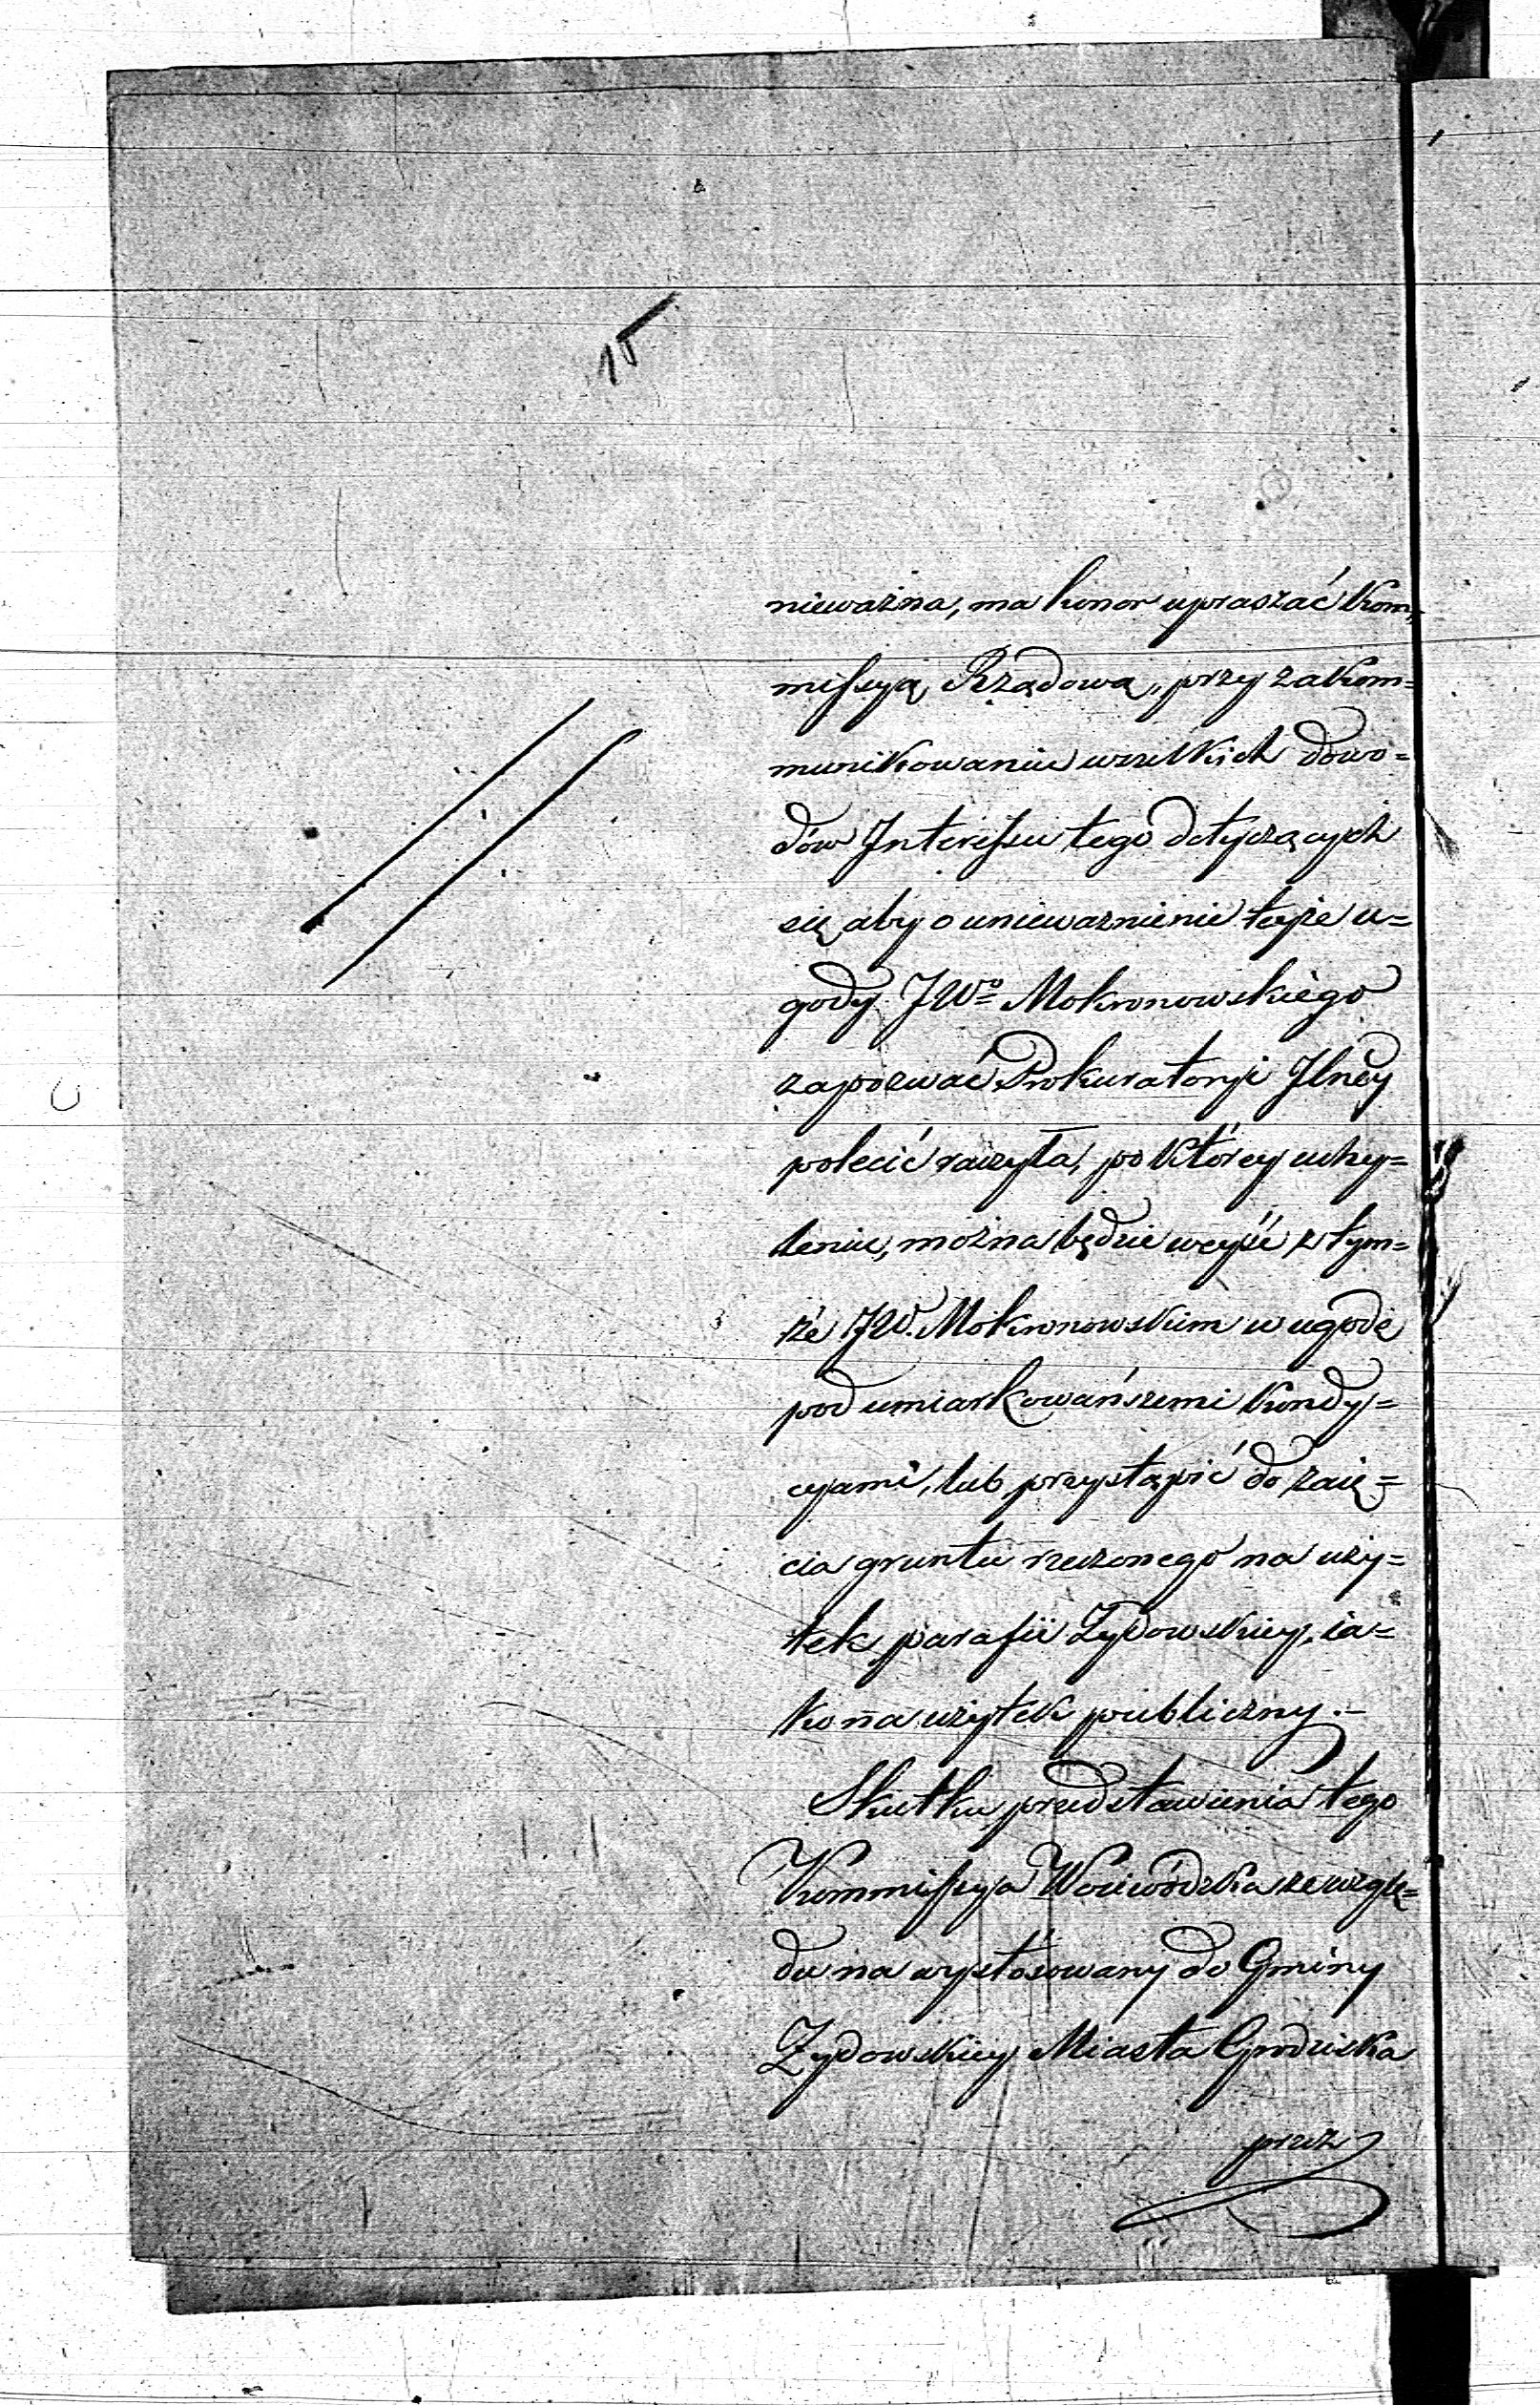 15
nieważna, ma honor upraszać Kom,
missyą Rządową, przy zakom=
munikowaniu wszelkich dowo=
dów Interessu tego dotyczących
się, aby o unieważnienie teyże u=
gody JWo Mokronowskiego
zapozwać Prokuratoryi Jlney
polecić raczyła, po którey uchy=
leniu, można będzie weyść z tym=
że JW. Mokronowskim w ugodę
pod umiarkowańszemi kondy=
cyami, lub przystąpić do zaię=
cia gruntu rzeczonego na uży=
tek parafii Żydowskiey, ia=
ko na użytek publiczny.—
Skutku przedstawienia tego
Kommissya Woiewódzka ze wzglę=
du na wystósowany do Gminy
Żydowskiey Miasta Grodziska
przez